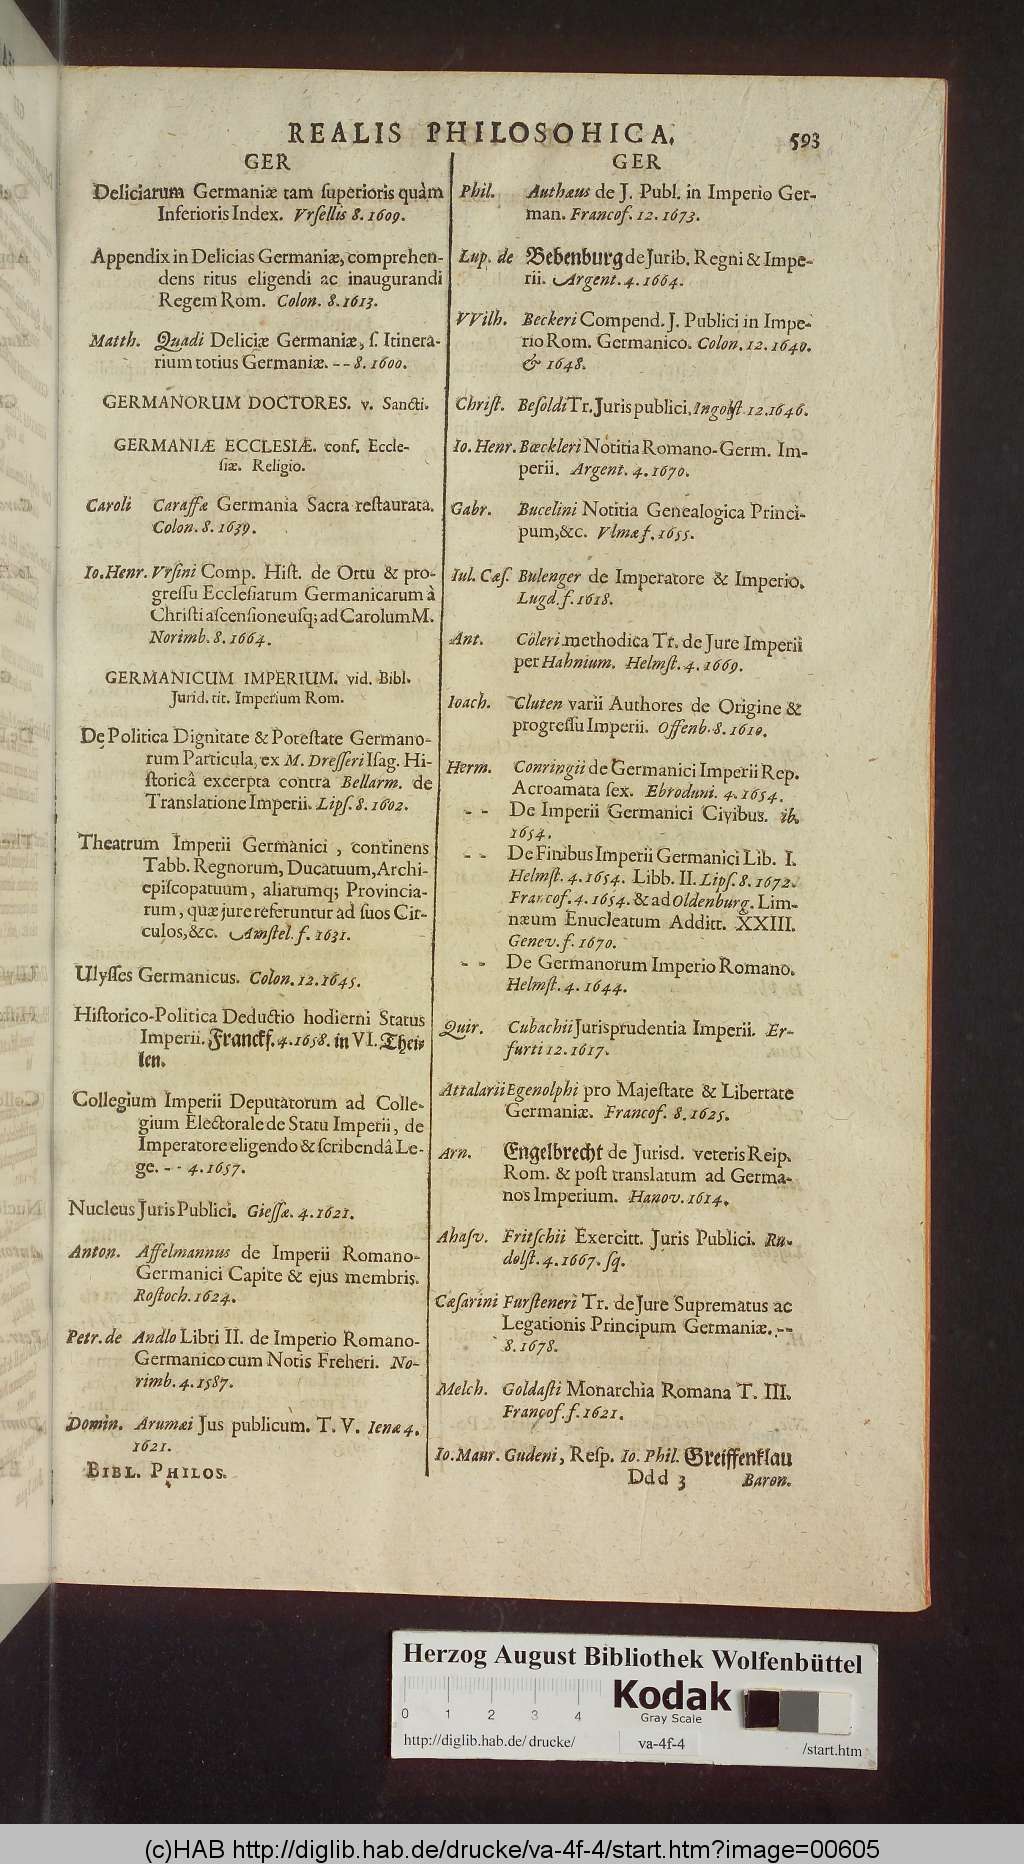 REALIS PHILOSOHICA.
593
GER
Deliciarum Germaniæ tam ſuperioris quàm
Inferioris Index. Vrſellis 8. 1609.
Appendix in Delicias Germaniæ, comprehen-
dens ritus eligendi ac inaugurandi
Regem Rom. Colon. 8. 1613.
Matth. Quadi Deliciæ Germaniæ, ſ. Itinera-
rium totius Germaniæ. -- 8. 1600.
GERMANORUM DOCTORES. v. Sancti.
GERMANIÆ ECCLESIÆ. conf. Eccle-
ſiæ. Religio.
Caroli Caraffæ Germania Sacra reſtaurata.
Colon. 8. 1639.
Io. Henr. Vrſini Comp. Hiſt. de Ortu & pro-
greſſu Eccleſiarum Germanicarum à
Chriſti aſcenſione uſq; ad Carolum M.
Norimb. 8. 1664.
GERMANICUM IMPERIUM. vid. Bibl.
Jurid. tit. Imperium Rom.
De Politica Dignitate & Poteſtate Germano-
rum Particula, ex M. Dreſſeri Iſag. Hi-
ſtoricâ excerpta contra Bellarm. de
Translatione Imperii. Lipſ. 8. 1602.
Theatrum Imperii Germanici, continens
Tabb. Regnorum, Ducatuum, Archi-
epiſcopatuum, aliarumq; Provincia-
rum, quæ jure referuntur ad ſuos Cir-
culos, &c. Amſtel. f. 1631.
Ulyſſes Germanicus. Colon. 12. 1645.
Hiſtorico-Politica Deductio hodierni Status
Imperii. Franckf. 4. 1658. in VI. Thei-
len.
Collegium Imperii Deputatorum ad Colle-
gium Electorale de Statu Imperii, de
Imperatore eligendo & ſcribendâ Le-
ge. -- 4. 1657.
Nucleus Juris Publici. Gieſſæ. 4. 1621.
Anton. Affelmannus de Imperii Romano-
Germanici Capite & ejus membris.
Roſtoch. 1624.
Petr. de Andlo Libri II. de Imperio Romano-
Germanico cum Notis Freheri. No-
rimb. 4. 1587.
Domin. Arumæi Jus publicum. T. V. Ienæ 4.
1621.
BIBL. PHILOS.
GER
Phil. Authæus de J. Publ. in Imperio Ger-
man. Francof. 12. 1673.
Lup. de Bebenburg de Jurib. Regni & Impe-
rii. Argent. 4. 1664.
VVilh. Beckeri Compend. J. Publici in Impe-
rio Rom. Germanico. Colon. 12. 1640.
& 1648.
Chriſt. Beſoldi Tr. Juris publici, Ingolſt 12. 1646.
Io. Henr. Bœckleri Notitia Romano-Germ. Im-
perii. Argent. 4. 1670.
Gabr. Bucelini Notitia Genealogica Princi-
pum, &c. Vlmæ f. 1655.
Iul. Cæſ. Bulenger de Imperatore & Imperio.
Lugd. f. 1618.
Ant. Cöleri methodica Tr. de Jure Imperii
per Hahnium. Helmſt. 4. 1669.
Ioach. Cluten varii Authores de Origine &
progreſſu Imperii. Offenb. 8. 1610.
Herm. Conringii de Germanici Imperii Rep.
Acroamata ſex. Ebroduni. 4. 1654.
-- De Imperii Germanici Civibus. ib.
1654.
-- De Finibus Imperii Germanici Lib. I.
Helmſt. 4. 1654. Libb. II. Lipſ. 8. 1672.
Francof. 4. 1654. & ad Oldenburg. Lim-
næum Enucleatum Additt. XXIII.
Genev. f. 1670.
-- De Germanorum Imperio Romano.
Helmſt. 4. 1644.
Quir. Cubachii Jurisprudentia Imperii. Er-
furti 12. 1617.
Attalarii Egenolphi pro Majeſtate & Libertate
Germaniæ. Francof. 8. 1625.
Arn. Engelbrecht de Jurisd. veteris Reip.
Rom. & poſt translatum ad Germa-
nos Imperium. Hanov. 1614.
Ahaſv. Fritſchii Exercitt. Juris Publici. Ru-
dolſt. 4. 1667. ſq.
Cæſarini Furſteneri Tr. de Jure Suprematus ac
Legationis Principum Germaniæ. --
8. 1678.
Melch. Goldaſti Monarchia Romana T. III.
Francof. f. 1621.
Io. Maur. Gudeni, Reſp. Io. Phil. Greiffenklau
Ddd 3 Baron.
Herzog August Bibliothek Wolfenbüttel
0 1 2 3 4
Kodak
Gray Scale
http://diglib.hab.de/drucke/ va-4f-4 /start.htm
(c)HAB http://diglib.hab.de/drucke/va-4f-4/start.htm?image=00605